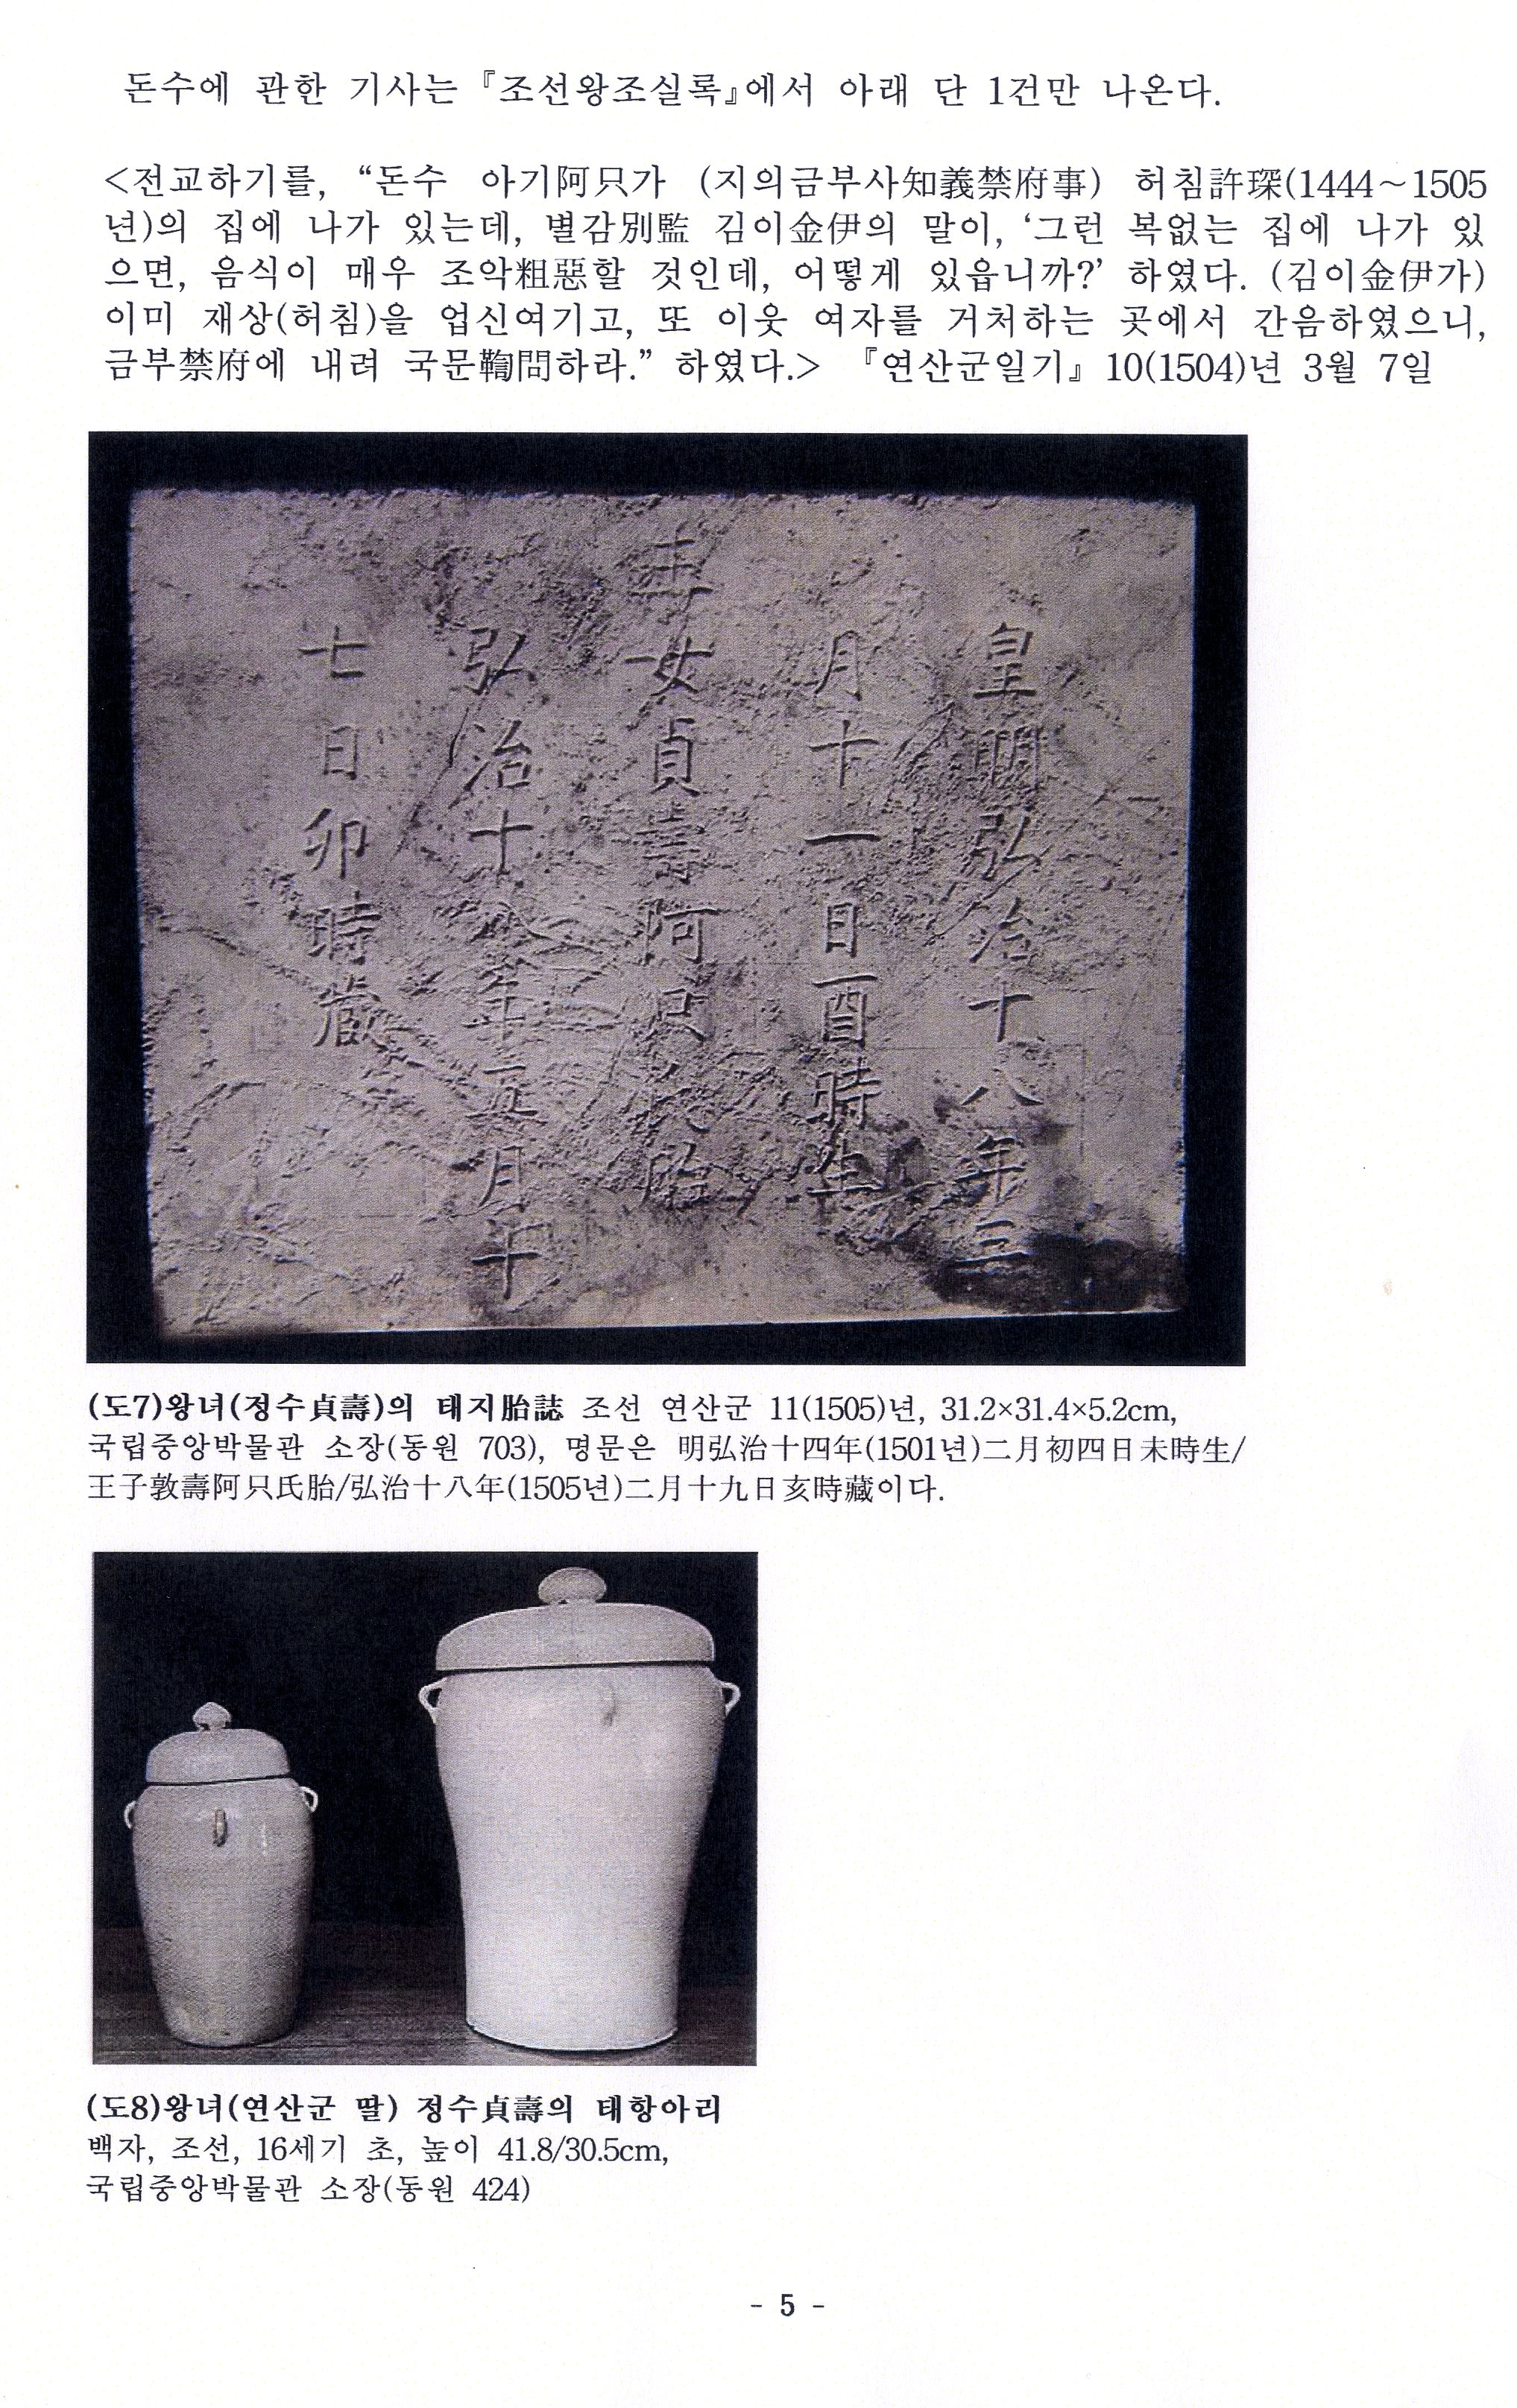 돈수에 관한 기사는 『조선왕조실록』에서 아래 단 1건만 나온다.
<전교하기를, “돈수 아기阿只가 (지의금부사知義禁府事) 허침許琛(1444～1505
년)의 집에 나가 있는데, 별감別監 김이金伊의 말이, ‘그런 복없는 집에 나가 있
으면, 음식이 매우 조악粗惡할 것인데, 어떻게 있읍니까?’ 하였다. (김이金伊가)
이미 재상(허침)을 업신여기고, 또 이웃 여자를 거처하는 곳에서 간음하였으니,
금부禁府에 내려 국문鞫問하라.” 하였다.> 『연산군일기』 10(1504)년 3월 7일
皇明弘治十八年三
月十一日酉時生
王女貞壽阿只氏胎
弘治十八年五月十
七日卯時藏
(도7)왕녀(정수貞壽)의 태지胎誌 조선 연산군 11(1505)년, 31.2×31.4×5.2cm,
국립중앙박물관 소장(동원 703), 명문은 明弘治十四年(1501년)二月初四日未時生/
王子敦壽阿只氏胎/弘治十八年(1505년)二月十九日亥時藏이다.
(도8)왕녀(연산군 딸) 정수貞壽의 태항아리
백자, 조선, 16세기 초, 높이 41.8/30.5cm,
국립중앙박물관 소장(동원 424)
- 5 -